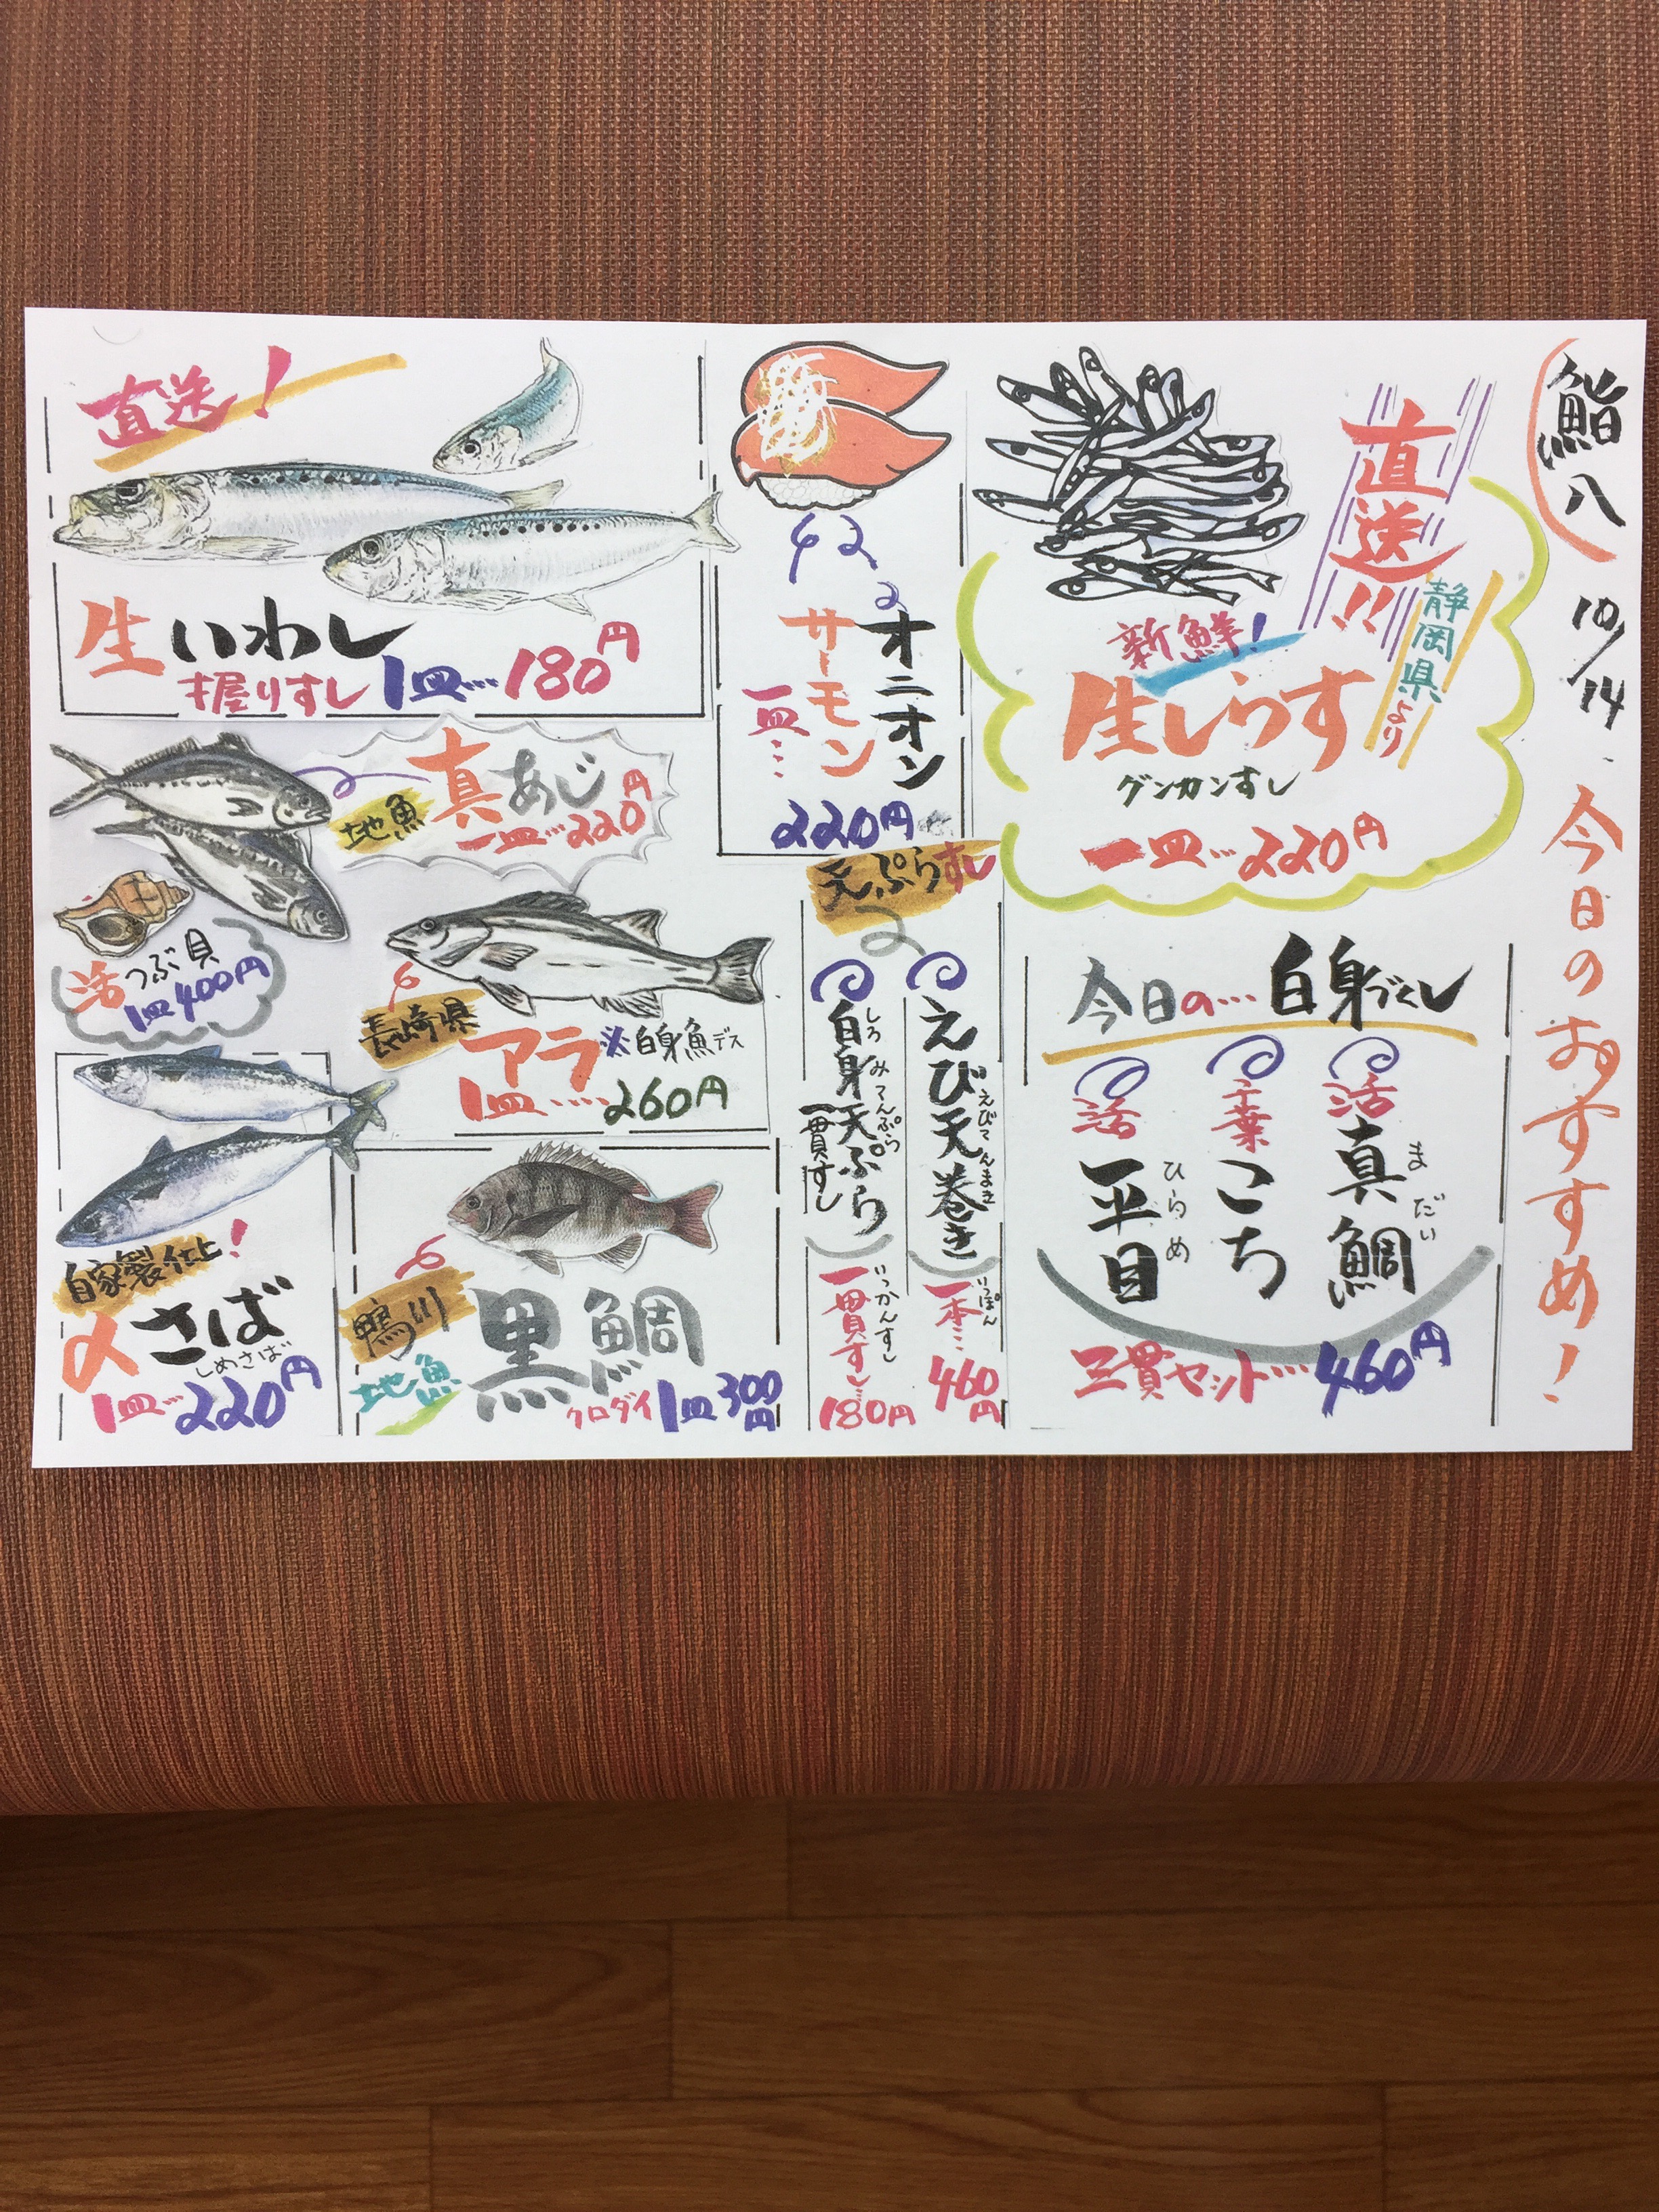 鮨八
10/14
今日のおすすめ！
直送!!
静岡県より
新鮮！
生しらす
グンカンすし
一皿…220円
今日の…白身づくし
活真鯛
まだい
千葉こち
活平目
ひらめ
三貫セット…460円
オニオン
サーモン
一皿…
220円
天ぷらすし
えび天巻き
えびてんまき
一本…
いっぽん
460円
白身天ぷら
しろみてんぷら
一貫すし
一貫すし…
いっかんすし
180円
直送！
生いわし
握りすし1皿…180円
地魚
真あじ
一皿…220円
活つぶ貝
1皿400円
長崎県
アラ
※白身魚デス
1皿....260円
自家製仕上！
〆さば
しめさば
1皿…220円
鴨川
地魚
黒鯛
クロダイ
1皿300円